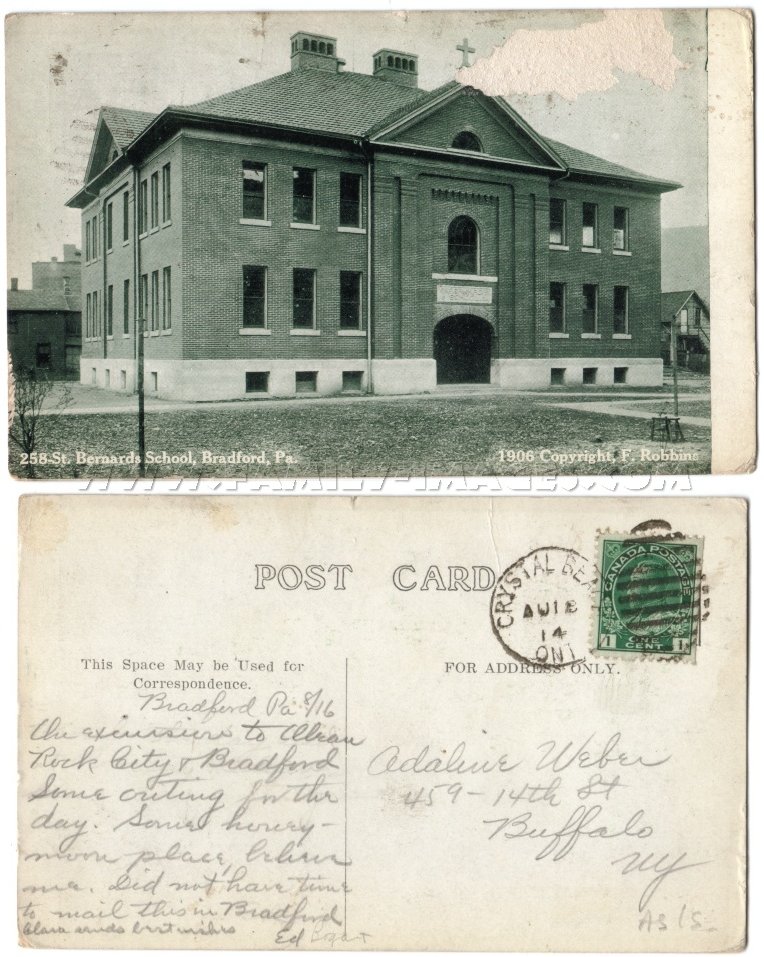 258-St. Bernards School, Bradford, Pa.
1906 Copyright, F. Robbins
WWW.FAMILY-IMAGES.COM
POST CARD
CRYSTAL BEA
AU 18
14
ONT
CANADA POSTAGE
1 ONE CENT 1
This Space May be Used for
Correspondence.
FOR ADDRESS ONLY.
Bradford Pa 8/16
On excursion to Olean
Rock City & Bradford
Some outing for the
day. Some honey-
moon place, believe
me. Did not have time
to mail this in Bradford
Clara sends best wishes
Ed Bogart
Adaline Weber
459-14th St
Buffalo
NY
As Is.